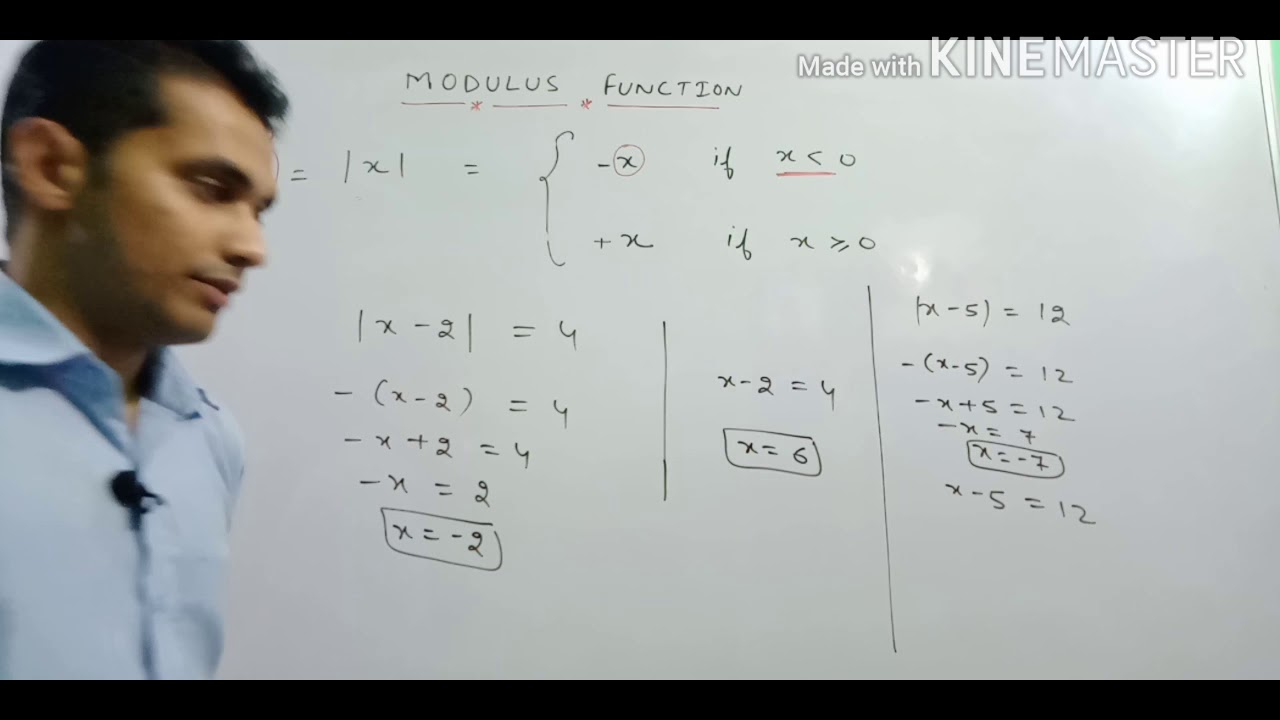 Made with KINEMASTER
MODULUS * FUNCTION *
= |x| = { -x if x < 0
+x if x ≥ 0
|x - 2| = 4
- (x - 2) = 4
- x + 2 = 4
- x = 2
x = -2
x - 2 = 4
x = 6
|x - 5) = 12
- (x - 5) = 12
- x + 5 = 12
- x = 7
x = -7
x - 5 = 12